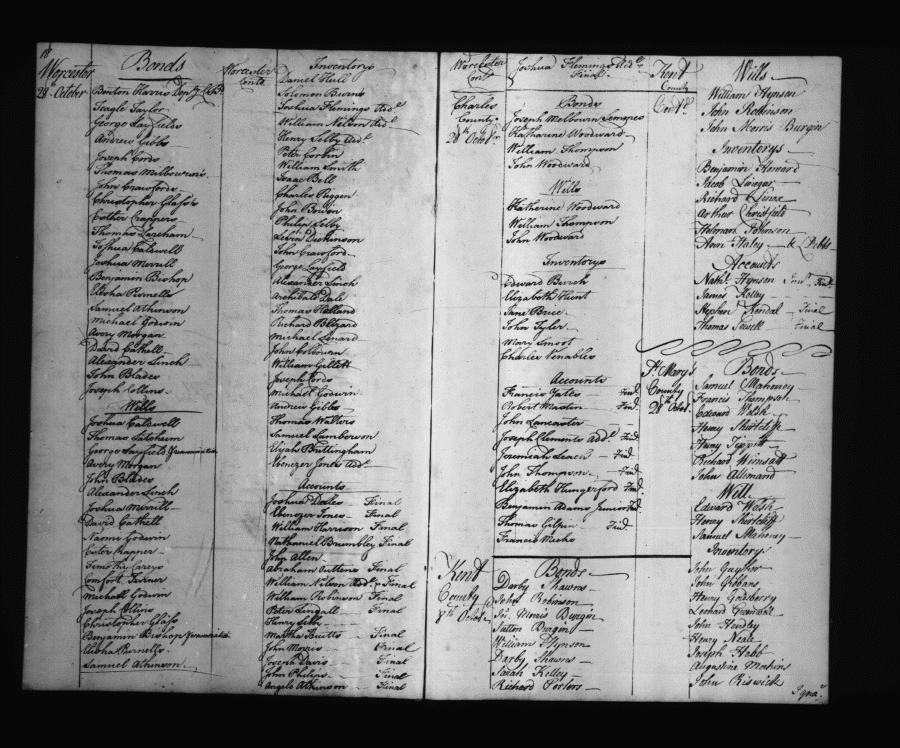 18
Worcester
28 October
Bonds
Benton Harris Depy
Teagle Taylor
George Layfields
Andrew Gibbs
Joseph Cords
Thomas Milbourn
John Crawford
Christopher Glass's
Esther Crappers
Thomas Lareham
Joshua Caldwell
Joshua Merrill
Benjamin Bishop
Elisha Purnells
Samuel Atkinson
Michael Godwin
Avery Morgan
David Cathell
Alexander Linch
John Blades
Joseph Collins
Wills
Joshua Caldwell
Thomas Latcheim
George Layfield
Avery Morgan
John Blades
Alexander Linch
Joshua Merrill
David Cathell
Naomi Godwin
Timothy Careys
Comfort
Michell Godwin
Joseph Collins
Christopher Glass
Benjamin Bishop
Elisha Purnells
Samuel Atkinson
Worcester
Contd
Inventorys
Daniel Hull
Solomon Burns
Joshua Flemings Add.l
William Nelson Add.l
Henry Selby Add.l
Peter Corbin
William Smith
Isaac Bell
Charles Riggen
John Bowen
Philip Selby
Levin Dickinson
John Crawford
George Layfield
Alexander Linch
Archibald Dale
Thomas Holland
Richard Blizard
Michael Lenard
John Colbourn
William Gillett
Joseph Cords
Michael Godwin
Andrew Gibbs
Thomas Walters
Samuel Lamberson
Elijah Brittingham
Ebenezer Jones Add.l
Accounts
Joshua Dales - Final
Ebenezer Jones - Final
William Harrison Final
Nathaniel Brumbley Final
John Allen
Abraham Outtens Final
William Nelson Add.l Final
William Robinson Final
Peter Lingall Final
Henry Selby
Martha Butts - Final
John Morris Final
Joseph Davis - Final
John Philips - Final
Angelo Atkinson - Final
Worcester
Contd
Joshua Flemings Add.l
Final
Charles
County
28th Octobr
Bonds
Joseph Melbourn Semmes
Katharine Woodward
William Thompson
John Woodward
Wills
Katherine Woodward
William Thompson
John Woodward
Inventorys
Edward Burch
Elizabeth Hunt
Jane Bruce
John Tyler
Mary Smoot
Charles Venables
Accounts
Francis Yates - Final
Robert Maston - Final
John Lancaster
Joseph Clements Add.l Final
Jeremiah Leach - Final
John Thompson - Final
Elizabeth Hungerford Final
Benjamin Adams Junior Final
Thomas Gilpin Final
Francis Meeks
Kent
County
8th October
Bonds
Darby Shawns
John Robinson
Jno. Morris Burgin
Sutton Burgin
William Hynson
Darby Shawns
Sarah Kelley
Richard Porters
Kent
County
Contd
Wills
William Hynson
John Robinson
John Morris Burgin
Inventorys
Benjamin Howard
Jacob
Richard Linax
Arthur Christfield
Holman Johnson
Ann Haley & Debts
Accounts
Nathl. Hynson Final
James Kelley
Stephen Kendal - Final
Thomas Sewell - Final
St. Marys
County
28th Octobr
Bonds
Samuel Mahoney
Francis Thompson
Edward Walsh
Henry Shircliffe
Henry Tippitt
Richard Wimsatt
John Allimand
Will
Edward Walsh
Henry Shircliffe
Samuel Mahoney
Inventory
John Guyther
John Gibbons
Henry Goldsberry
Leonard Greenwell
John Hendley
Henry Neale
Joseph Hebb
Augustine Makins
John Riswick
Igna.s